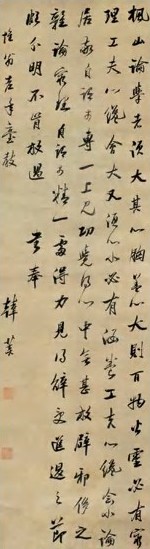 楓山論學者須大其心胸蓋心大則百物皆通必有窮
理工夫心纔會大又須心小必有涵養工夫心纔會小論
居敬自謂於專一上見功覺得心中無甚放辟邪侈之
雜論窮理自謂於精一處得力見得辭受進退之節
頗分明不肯放過 書奉
翁老年臺教
韓菼